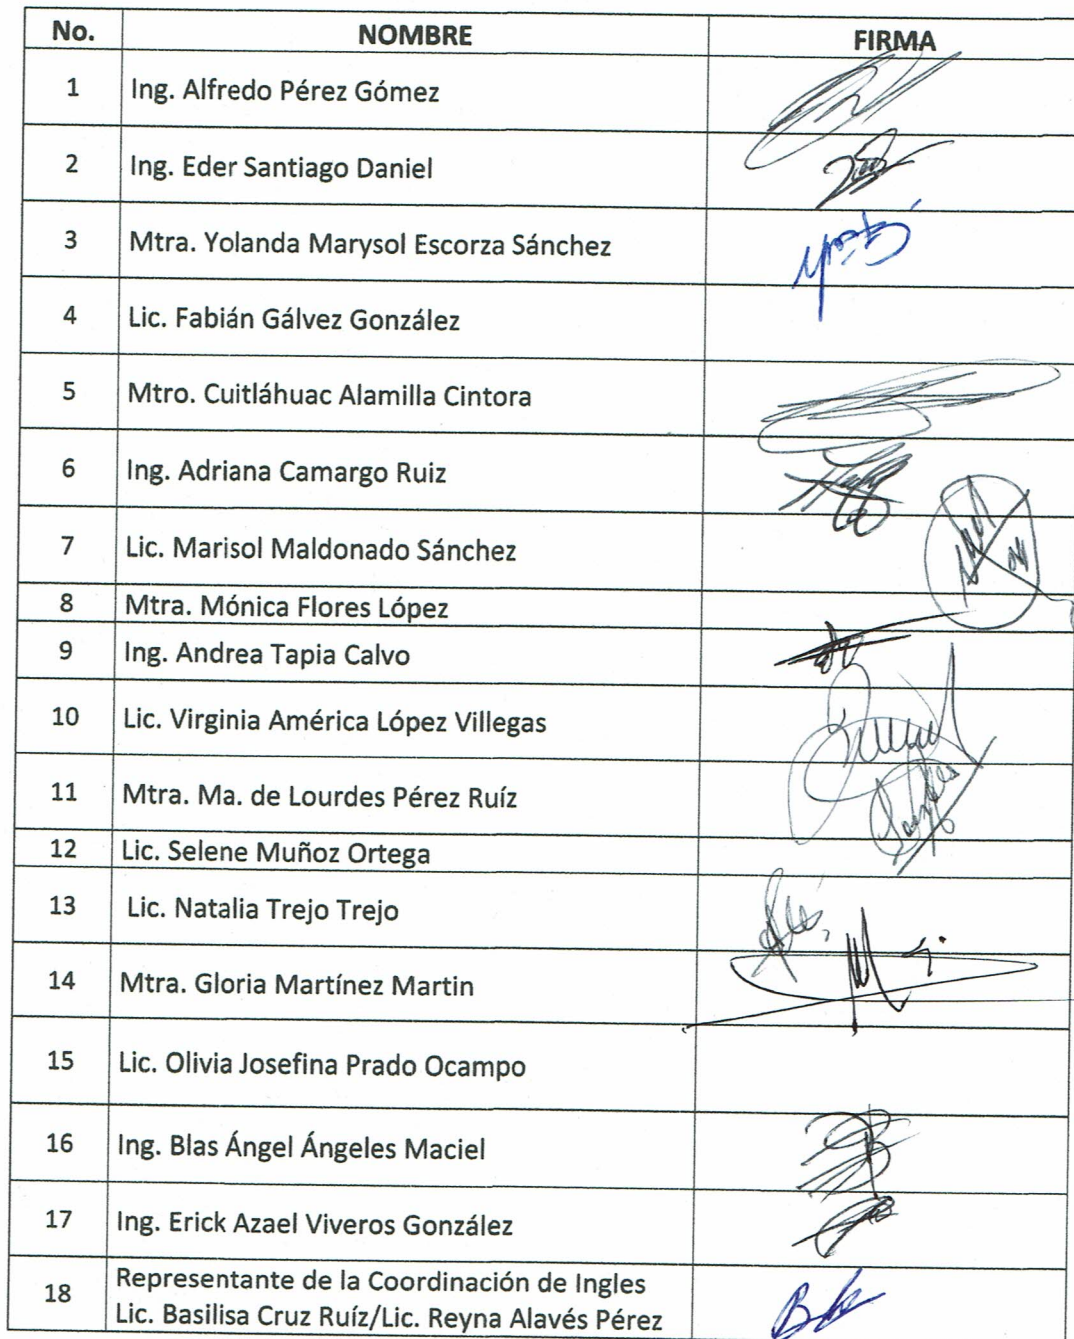 No. NOMBRE FIRMA
1 Ing. Alfredo Pérez Gómez
2 Ing. Eder Santiago Daniel
3 Mtra. Yolanda Marysol Escorza Sánchez
4 Lic. Fabián Gálvez González
5 Mtro. Cuitláhuac Alamilla Cintora
6 Ing. Adriana Camargo Ruiz
7 Lic. Marisol Maldonado Sánchez
8 Mtra. Mónica Flores López
9 Ing. Andrea Tapia Calvo
10 Lic. Virginia América López Villegas
11 Mtra. Ma. de Lourdes Pérez Ruíz
12 Lic. Selene Muñoz Ortega
13 Lic. Natalia Trejo Trejo
14 Mtra. Gloria Martínez Martin
15 Lic. Olivia Josefina Prado Ocampo
16 Ing. Blas Ángel Ángeles Maciel
17 Ing. Erick Azael Viveros González
18 Representante de la Coordinación de Ingles
Lic. Basilisa Cruz Ruíz/Lic. Reyna Alavés Pérez